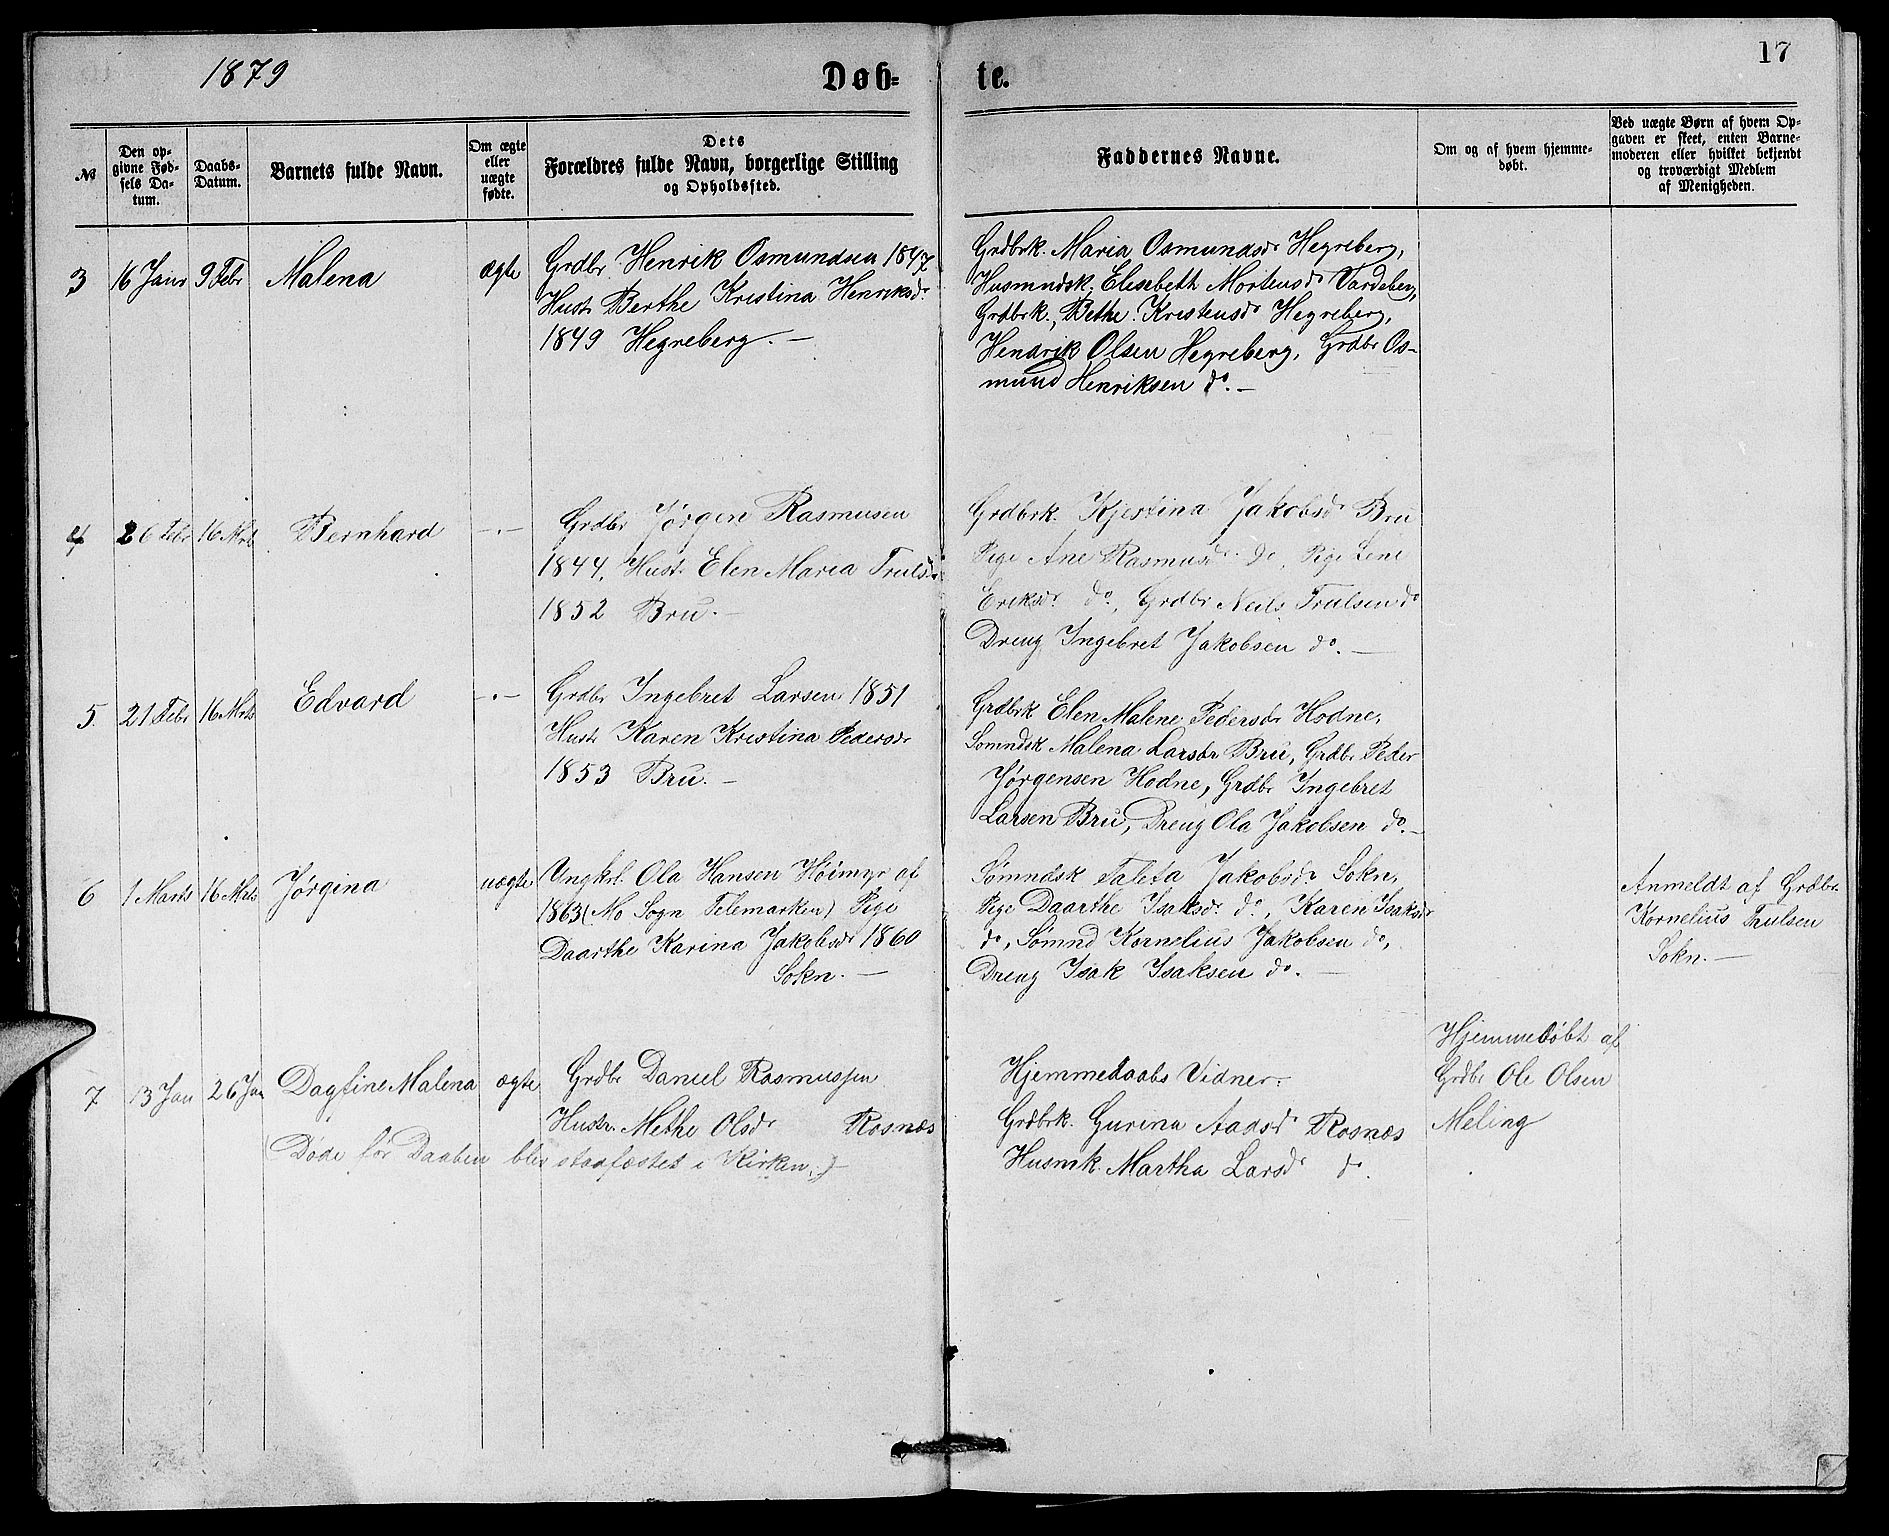 1879
Døb-
te.
17
№
Den op-
givne Fød-
sels Da-
tum.
Daabs-
Datum.
Barnets fulde Navn.
Om ægte
eller
uægte
fødte.
Dets
Forældres fulde Navn, borgerlige Stilling
og Opholdssted.
Faddernes Navne.
Om og af hvem hjemme-
døbt.
Ved uægte Børn af hvem Op-
gaven er skeet, enten Barne-
moderen eller hvilket bekjendt
og troværdigt Medlem
af Menigheden.
3 16 Janr 9 Febr Malena ægte
Grdbr Henrik Osmundsen 1847
Hustr Berthe Kristina Henriksdr
1849 Hegreberg. —
Grdbrk. Maria Osmundsdr Hegreberg,
Husmndsk. Elisebeth Mortensdr Vardeberg,
Grdbrk., Bethe Kristensdr Hegreberg,
Hendrik Olsen Hegreberg, Grdbr Os-
mund Henriksen do. —
4 26 Febr 16 Mrts Bernhard -"-
Grdbr Jørgen Rasmusen
1844, Hustr Elen Maria Trulsdr
1852 Bru. —
Grdbrk. Kjestina Jakobsdr Bru
Pige Ane Rasmusdr do, Pige Lene
Eriksdr do, Grdbr Neils Trulsen do
Dreng Ingebret Jakobsen do. —
5 21 Febr 16 Mrts Edvard -"-
Grdbr Ingebret Larsen 1851
Hustr Karen Kristina Pedersdr
1853 Bru. —
Grdbrk Elen Malene Pedersdr Hodne,
Sømndsk Malena Larsdr Bru, Grdbr Peder
Jørgensen Hodne, Grdbr Ingebret
Larsen Bru, Dreng Ola Jakobsen do. —
6 1 Marts 16 Mrts Jørgina uægte
Ungkrl. Ola Hansen Høimyr af
1863 (Mo Sogn Telemarken) Pige
Daarthe Karina Jakobsdr 1860
Sokn. —
Sømndsk Taleta Jakobsdr Sokn,
Pige Daarthe Isaksdr do, Karen Isaksdr
do, Sømnd Kornelius Jakobsen do,
Dreng Isak Isaksen do. —
Anmeldt af Grdbr.
Kornelius Trulsen
Sokn. —
7 13 Jan 26 Jan Dagfine Malena ægte
Grdbr Daniel Rasmussen
Hustr. Methe Olsdr Rosnæs
(Døde før Daaben blev stadfæstet i Kirken.)
Hjemmedaabs Vidner:
Grdbrk. Gurina Aadsdr Rosnæs
Husmk. Martha Larsdr do.
Hjemmedøbt af
Grdbr Ole Olsen
Meling